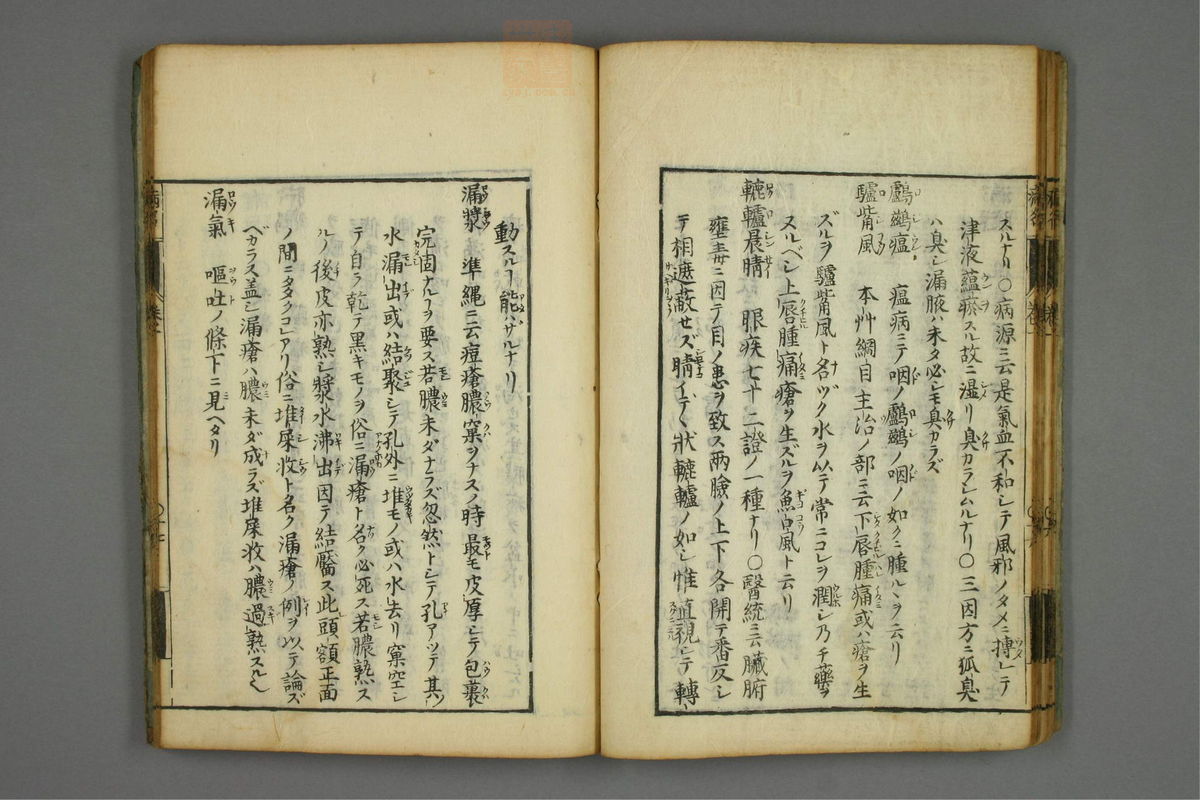 スルナリ〇病源ニ云是氣血不和シテ風邪ノタメニ搏レテ
津液蘊瘀スル故ニ湿リ臭カラシムルナリ〇三因方ニ狐臭
ハ臭シ漏腋ハ未タ必シモ臭カラズ
鸕鷀瘟 瘟病ニテ咽ノ鸕鷀ノ咽ノ如クニ腫ルヽヲ云リ
驢觜風 本艸綱目主治ノ部ニ云下唇腫痛或ハ瘡ヲ生
ズルヲ驢觜風ト名ヅク水ヲ以テ常ニコレヲ潤シ乃チ藥ヲ
ヌルベシ上唇腫痛瘡ヲ生ズルヲ魚口風ト云リ
轆轤晨睛 眼疾七十二證ノ一種ナリ〇醫統ニ云臓腑
壅毒ニ因テ目ノ患ヲ致ス两瞼ノ上下各開テ番反シ
テ相遮蔽セズ睛イデヽ狀轆轤ノ如シ惟直視シテ轉
動スルヿ能ハサルナリ
漏漿 準縄ニ云痘瘡膿窠ヲナスノ時最モ皮厚シテ包裹
完固ナルヲ要ス若膿未ダナラズ忽然トシテ孔アツテ其
水漏出或ハ結聚シテ孔外ニ堆モノ或ハ水去リ窠空シ
テ自ラ乾テ黒キモノヲ俗ニ漏瘡ト名ク必死ス若膿熟ス
ルノ後皮亦熟シ漿水沸出因テ結靨ス此頭額正面
ノ間ニタヾタコレアリ俗ニ堆屎收ト名ク漏瘡ノ例ヲ以テ論ズ
ベカラス盖シ漏瘡ハ膿未ダ成ラズ堆屎收ハ膿過熟スル也
漏氣 嘔吐ノ條下ニ見ヘタリ